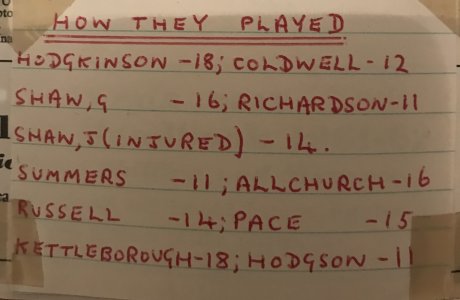 HOW THEY PLAYED
HODGKINSON -18; COLDWELL - 12
SHAW, G - 16; RICHARDSON-11
SHAW, J (INJURED) - 14.
SUMMERS -11; ALLCHURCH -16
RUSSELL -14; PACE -15
KETTLEBOROUGH-18; HODGSON -11